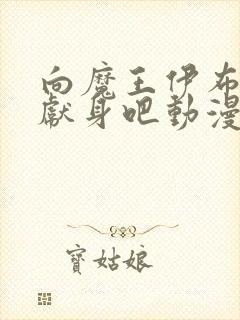 向魔王伊布
獻身吧動漫
寶姑娘